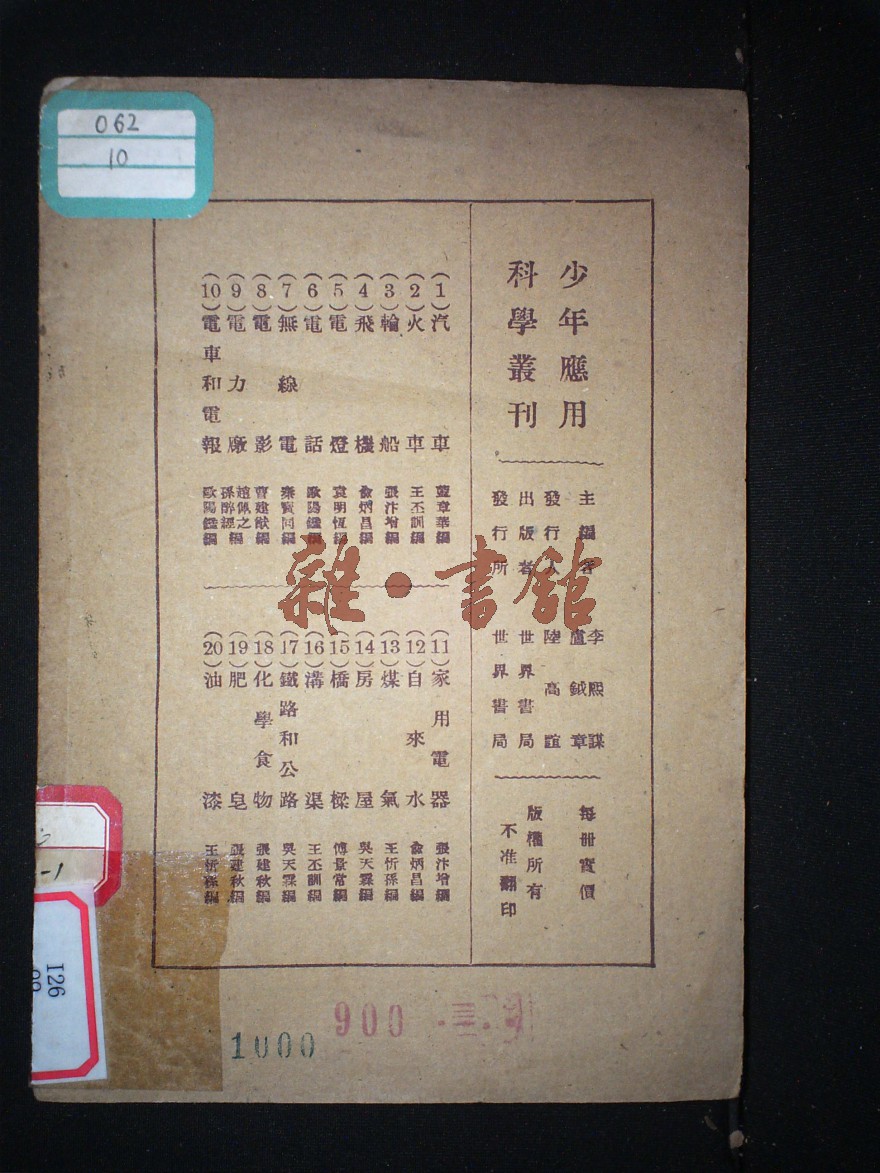 少年應用
科學叢刊
主編者 李熙謀
盧鉞章
發行人 陸高誼
出版者 世界書局
發行所 世界書局
每冊實價
版權所有
不准翻印
(1)汽車
(2)火車 王丕訓編
(3)輪船 張汴增編
(4)飛機 俞炳昌編
(5)電燈 袁明恆編
(6)電話 歐陽鑑編
(7)無線電 秦寶同編
(8)電影 曹建猷編
(9)電力廠 趙佩之
孫醉經編
(10)電車和電報 歐陽鑑編
(11)家用電器 張汴增編
(12)自來水 俞炳昌編
(13)煤氣 王忻孫編
(14)房屋 吳天霖編
(15)橋樑 傅景常編
(16)溝渠 王丕訓編
(17)鐵路和公路 吳天霖編
(18)化學食物 張建秋編
(19)肥皂 張建秋編
(20)油漆 王忻孫編
雜·書館
062
10
-1
I26
900
1000